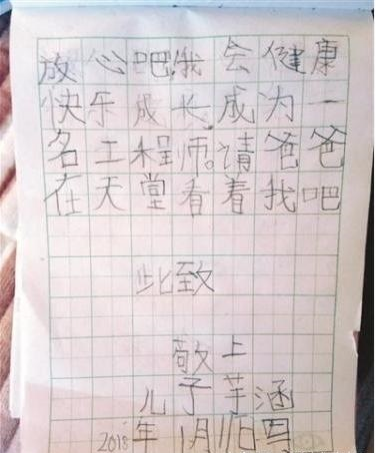 放心吧,我会健康
快乐成长,成为一
名工程师。请爸爸
在天堂看着我吧
此致
敬上
儿子芋涵
2018年1月11日